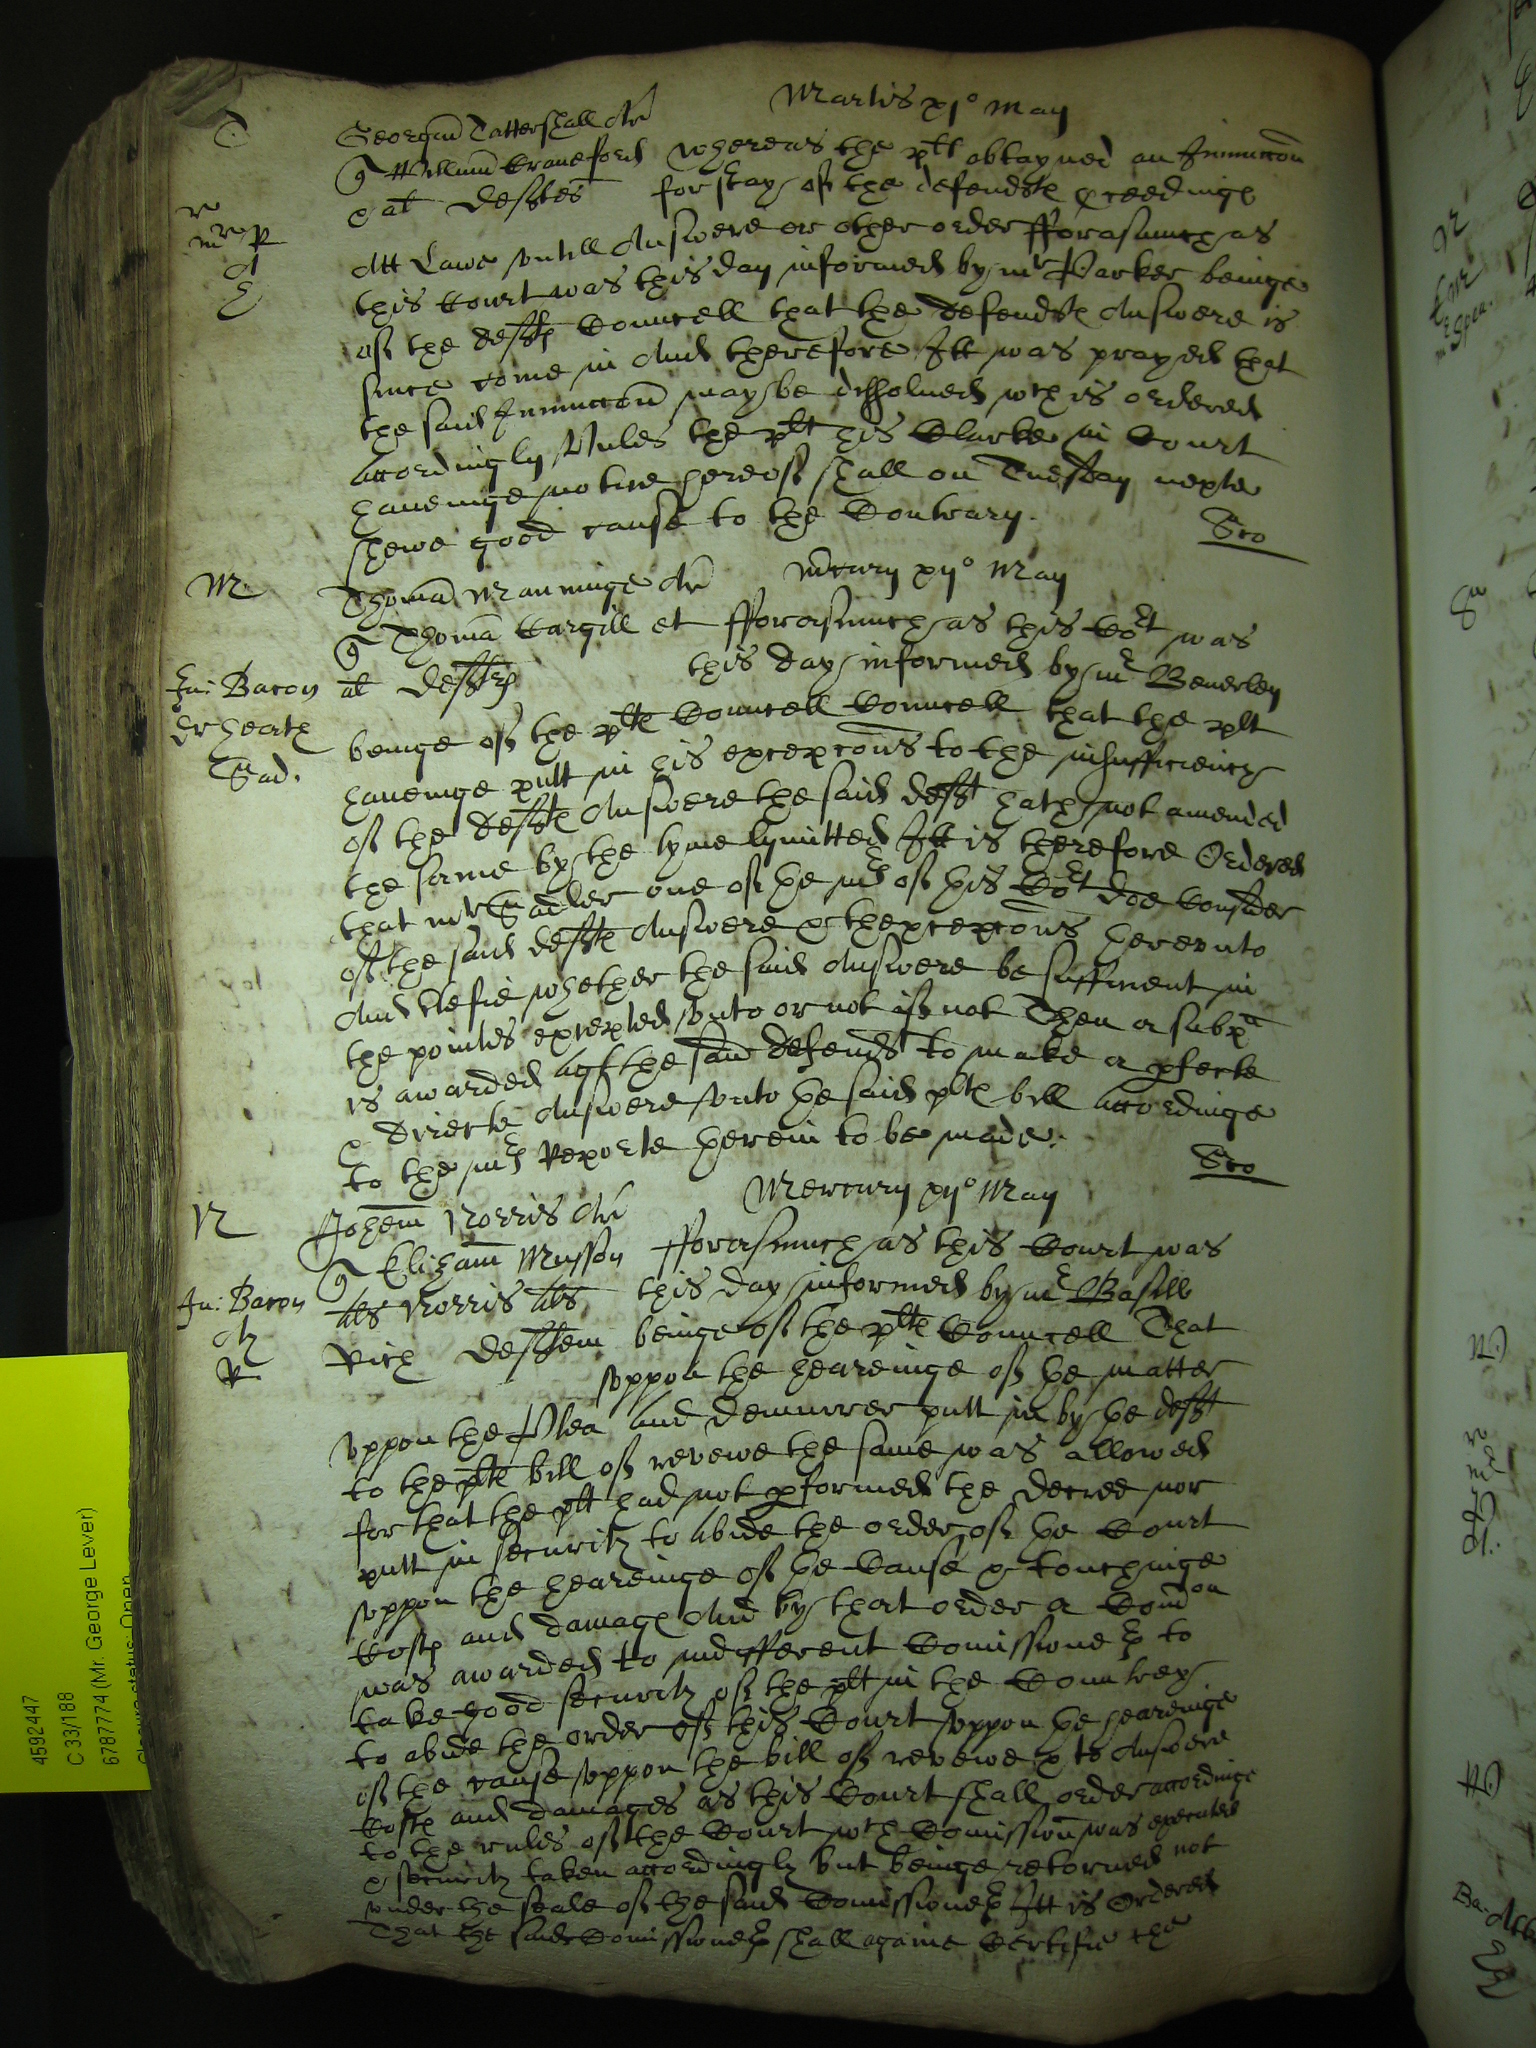 Martis xjo May
T
Georgiu Tattershall Ar
Willmu Craneford
Whereas the plt obtayned an Iniunccon
& al defftes
for stay of the defendts pceedinge
Att Lawe untill Answere or other order fforasmuch as
this Court was this day informed by mr Parker beinge
of the defts Councell that the defendts Answere is
since come in And therefore Itt was prayed that
the said Iniunccon may be dissolued wch is ordered
accordingly Unles the plt his Clarke in Court
haueinge notice hereof shall on Tuesday nexte
shewe good cause to the Contrary.
M.
Thoma Manninge Ar
Mercury xijo May
Thoma Cargill et
al defftes
fforasmuch as this Cort was
this day informed by mr Beuerley
Fr: Bacon
Dr heath
Sad.
beinge of the plts Councell Councell that the plt
haueinge putt in his excepcons to the insufficiency
of the deffts Answere the said defft hath not amended
the same by the tyme lymitted Itt is therefore Ordered
that mr Sadler one of he mrs of his Cort doe Consider
of the said deffts Answere & thexcepcons herevnto
And Certefie whether the said Answere be sufficient in
the pointes excepted vnto or not if not Then a subpa
is awarded agt the said defendt to make a pfecte
& directe Answere vnto he said plts bill accordinge
to the mrs Reporte herein to be made.
N
Johem Norris Ar
Mercury xijo May
Elizam Musson
als Norris als
Rich defftem
fforasmuch as this Court was
this day informed by mr Basill
beinge of the plts Councell That
Fr: Bacon
R
vppon the heareinge of he matter
vppon the Plea and demurrer putt in by he defft
to the plts bill of revewe the same was allowed
for that the plt had not pformed the decree nor
putt in security to abide the order of he Court
vppon the heareinge of he Cause & touchinge
Costs and damags And by that order a Comon
was awarded to indifferent Comissioners to
take good security of the plt in the Countrey
to abide the order of this Court vppon he heareinge
of the cause vppon the bill of revewe & to Answere
Costs and damages as this Court shall order accordinge
to the rules of the Court wch Comission was executed
& security taken accordingly but beinge retorned not
vnder the seale of the said Comissioners Itt is Ordered
That the said Comissioners shall againe Certifie the
4592447
C 33/188
6787774 (Mr. George Lever)
Closure status: Open